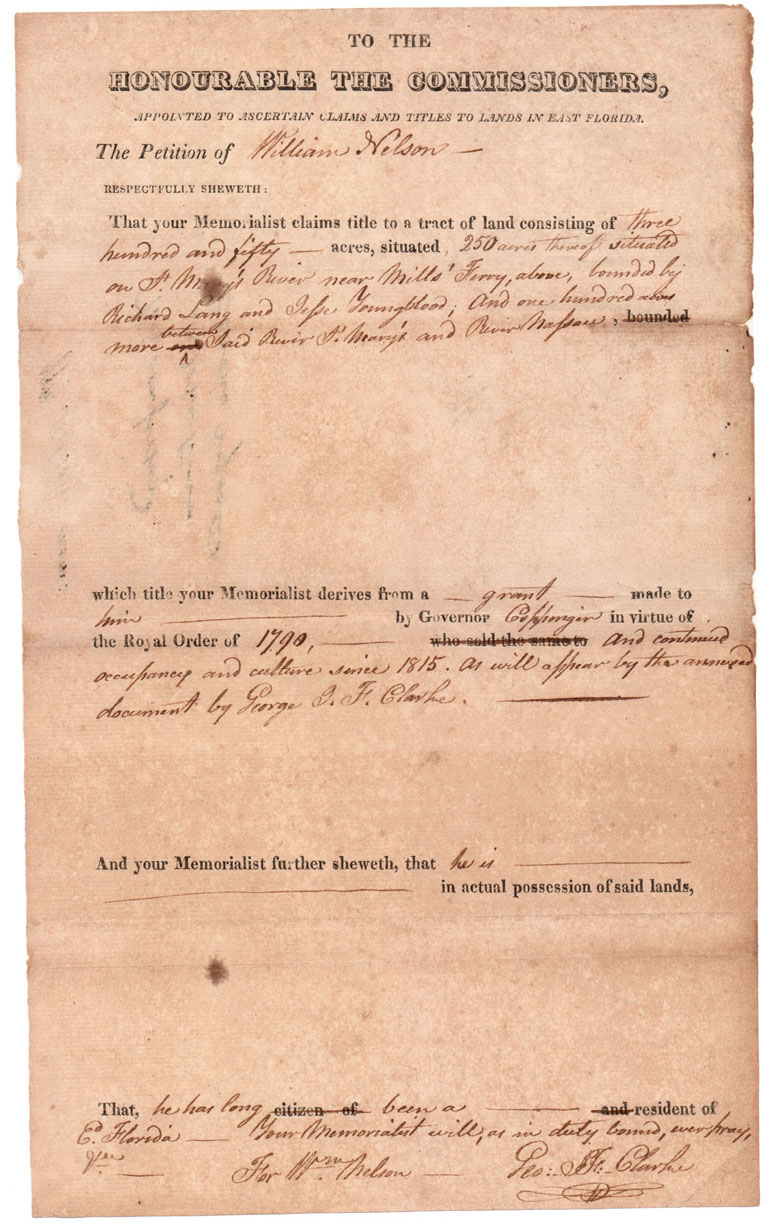 TO THE
HONOURABLE THE COMMISSIONERS,
APPOINTED TO ASCERTAIN CLAIMS AND TITLES TO LANDS IN EAST FLORIDA.
The Petition of William Nelson —
RESPECTFULLY SHEWETH:
That your Memorialist claims title to a tract of land consisting of three
hundred and fifty — acres, situated, 250 acres thereof situated
on St. Mary's River near Mills' Ferry, above, bounded by
Richard Lang and Jesse Youngblood; And one hundred acres
more between Said River St. Mary's and River Nassau, bounded
which title your Memorialist derives from a — grant — made to
him — by Governor Coppinger in virtue of
the Royal Order of 1790, — who sold the same to and continued
occupancy and culture since 1815. as will appear by the annexed
document by George J. F. Clarke. —
And your Memorialist further sheweth, that he is —
— in actual possession of said lands,
That, he has long citizen of been a — and resident of
Et. Florida — Your Memorialist will, as in duty bound, ever pray,
&ca —
For Wm. Nelson — Geo: J. F. Clarke